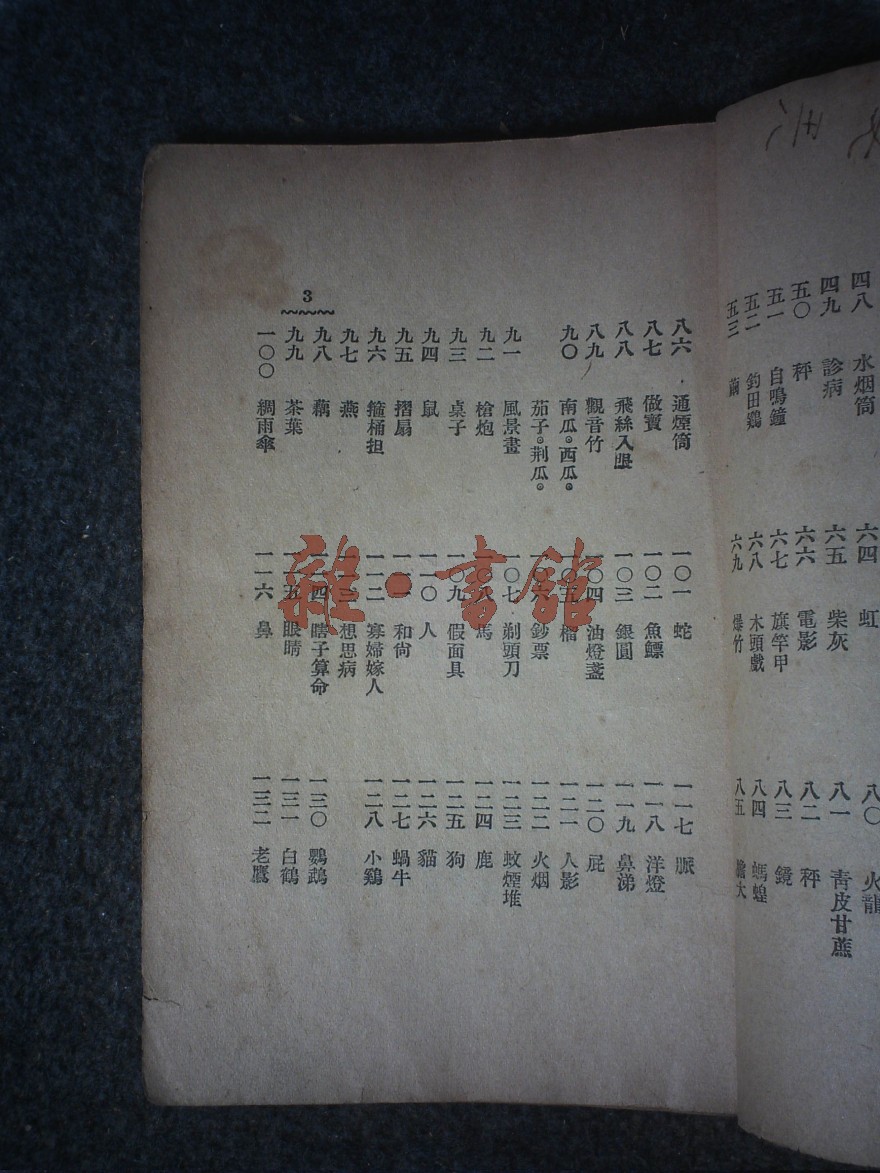 四八 水烟筒
四九 診病
五〇 秤
五一 自鳴鐘
五二 釣田鷄
五三 繭
六四 虹
六五 柴灰
六六 電影
六七 旗竿甲
六八 木頭戲
六九 爆竹
八〇 火龍
八一 青皮甘蔗
八二 秤
八三 鏡
八四 螞蝗
八五 大
3
八六 通煙筒
八七 做寶
八八 飛絲入眼
八九 觀音竹
九〇 南瓜。西瓜。
茄子。荆瓜。
九一 風景畫
九二 槍炮
九三 桌子
九四 鼠
九五 摺扇
九六 箍桶担
九七 燕
九八 藕
九九 茶葉
一〇〇 綢雨傘
一〇一 蛇
一〇二 魚鰾
一〇三 銀圓
一〇四 油燈盞
一〇五
一〇六 鈔票
一〇七 剃頭刀
一〇八 馬
一〇九 假面具
一一〇 人
一一一 和尙
一一二 寡婦嫁人
一一三 想思病
一一四 瞎子算命
一一五 眼睛
一一六 鼻
一一七 脈
一一八 洋燈
一一九 鼻涕
一二〇 屁
一二一 人影
一二二 火烟
一二三 蚊煙堆
一二四 鹿
一二五 狗
一二六 貓
一二七 蝸牛
一二八 小鷄
一三〇 鸚鵡
一三一 白鶴
一三二 老鷹
雜·書館